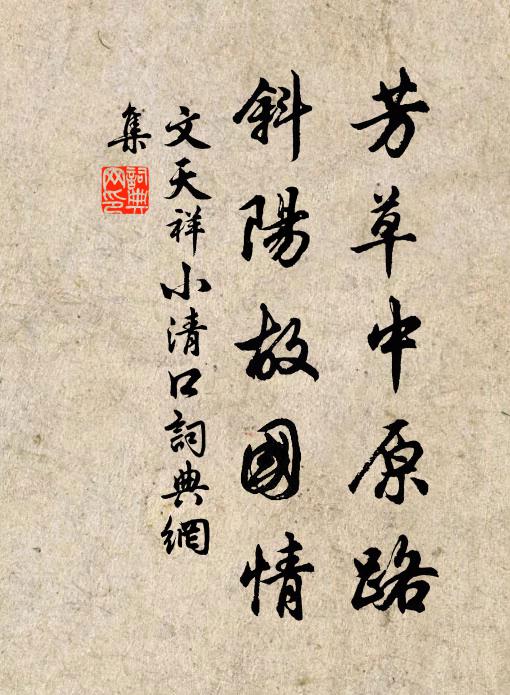 芳草中原路
斜陽故國情
文天祥小清口詞典網
集
詞典網印